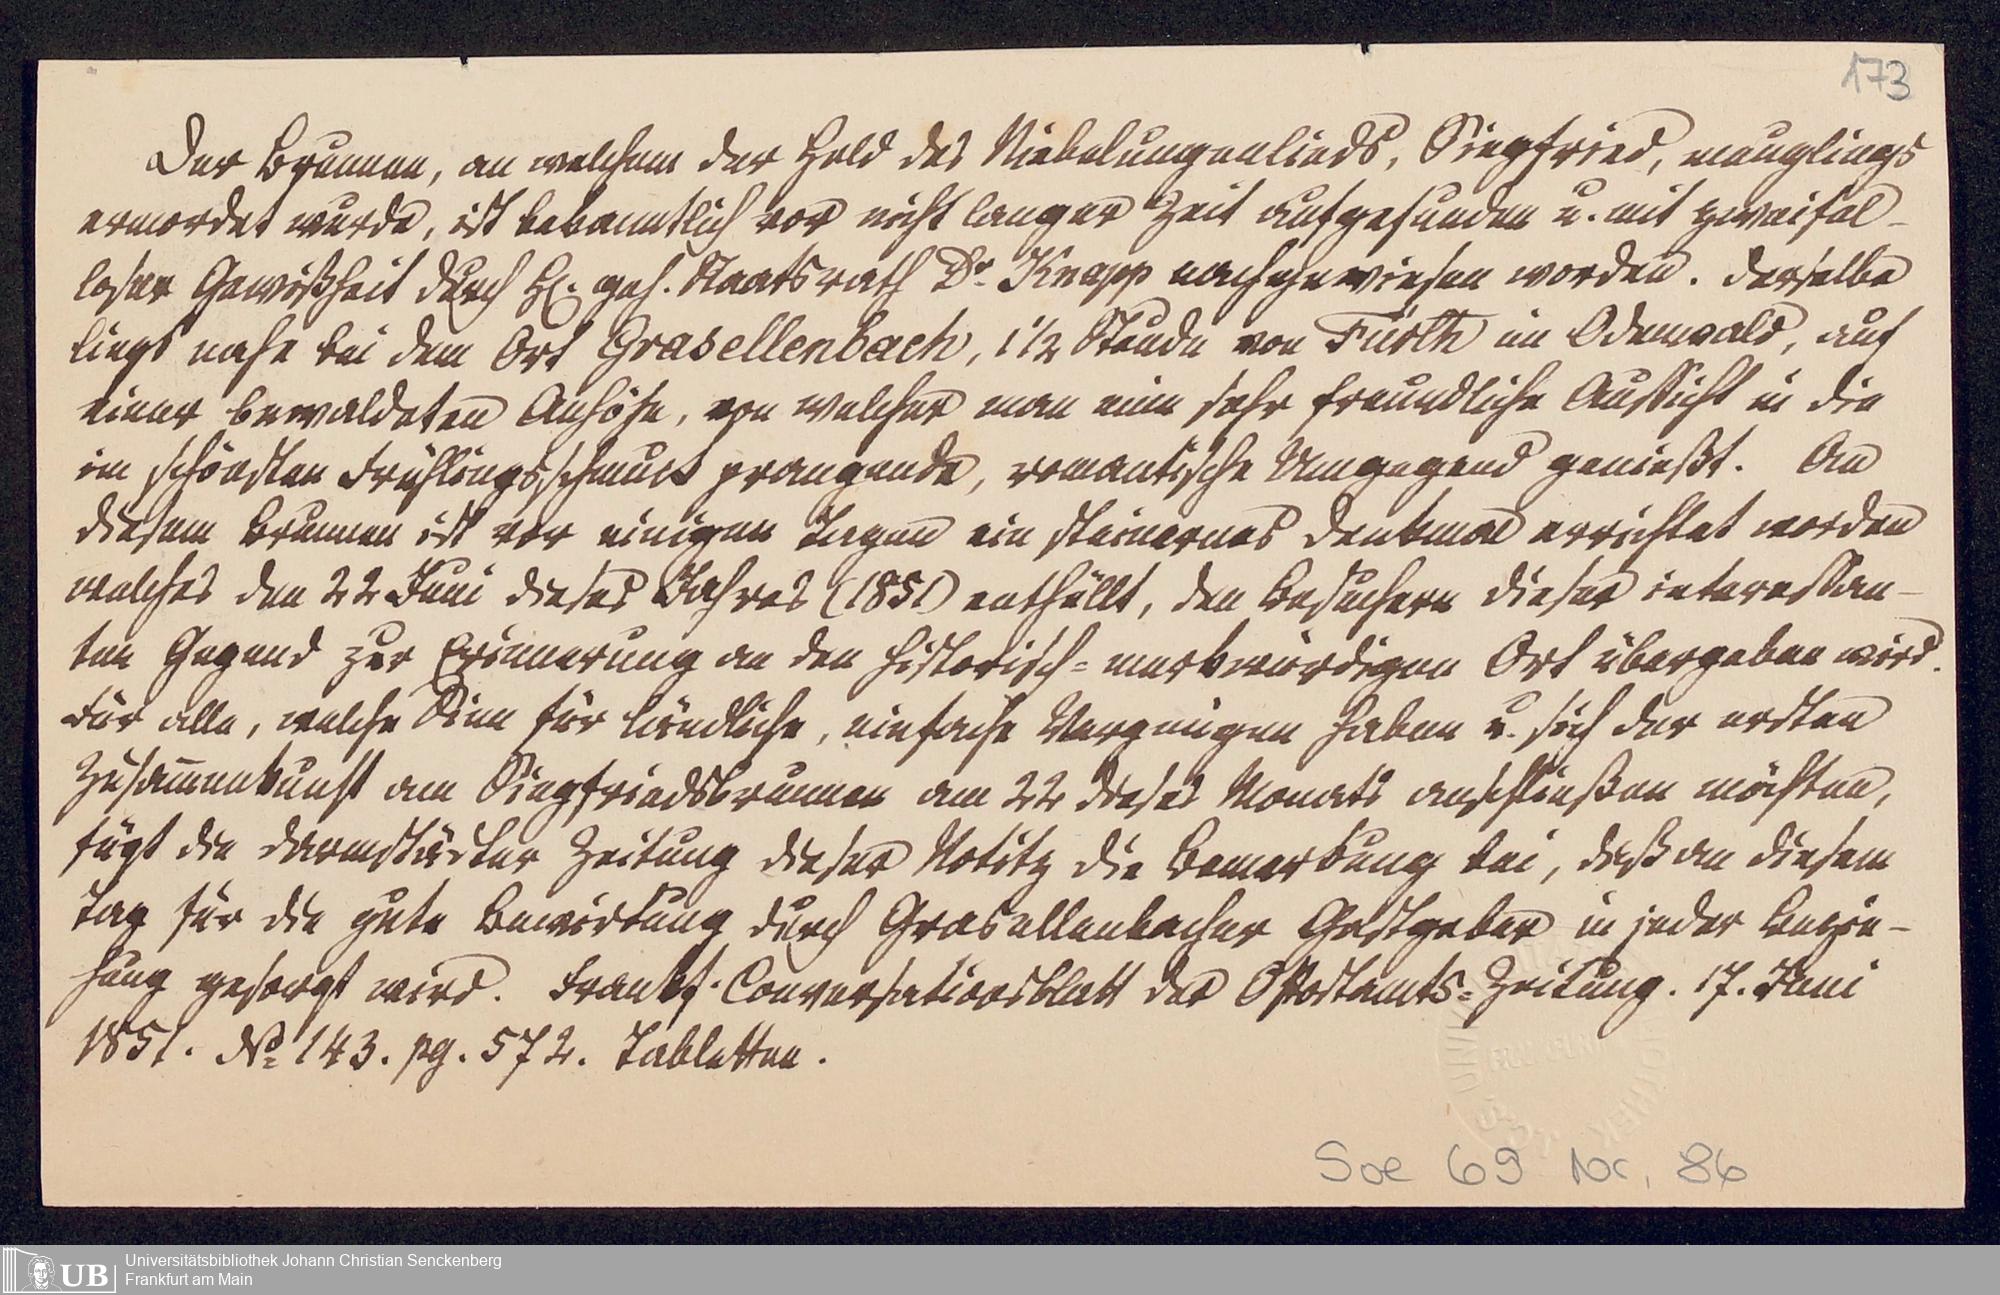 173
Der Brunnen, an welchem der Held des Niebelungenlieds, Siegfried, meuglings
ermordet wurde, ist bekanntlich vor nicht langer Zeit aufgefunden u. mit zweifel-
loser Gewißheit durch H. geh. Staatsrath Dr Knapp nachgewiesen worden. Derselbe
liegt nahe bei dem Ort Grasellenbach, 1 1/2 Stunde von Fürth im Odenwald, auf
einer bewaldeten Anhöhe, von welcher man eine sehr freundliche Aussicht in die
im schönsten Frühlingsschmuck prangende, romantische Umgegend genießt. An
diesem Brunnen ist vor einigen Tagen ein steinernes Denkmal errichtet worden
welches den 22 Juni dieses Jahres (1851) enthüllt, den Besuchern dieser interessan-
ten Gegend zur Erinnerung an den historisch-merkwürdigen Ort übergeben wird.
Für alle, welche Sinn für ländliche, einfache Vergnügen haben u. sich der ersten
Zusammenkunft am Siegfriedsbrunnen am 22 dieses Monats anschließen möchten,
fügt die Darmstädter Zeitung dieser Notitz die Bemerkung bei, daß an diesem
Tag für die gute Bewirtung durch Grasellenbacher Gastgeber in jeder Bezie-
hung gesorgt wird. Frankf. Conversationsblatt der OPostamts-Zeitung. 17. Juni
1851. No 143. pg. 572. Tabletten.
Soe 69 Nr. 86
UB
Universitätsbibliothek Johann Christian Senckenberg
Frankfurt am Main